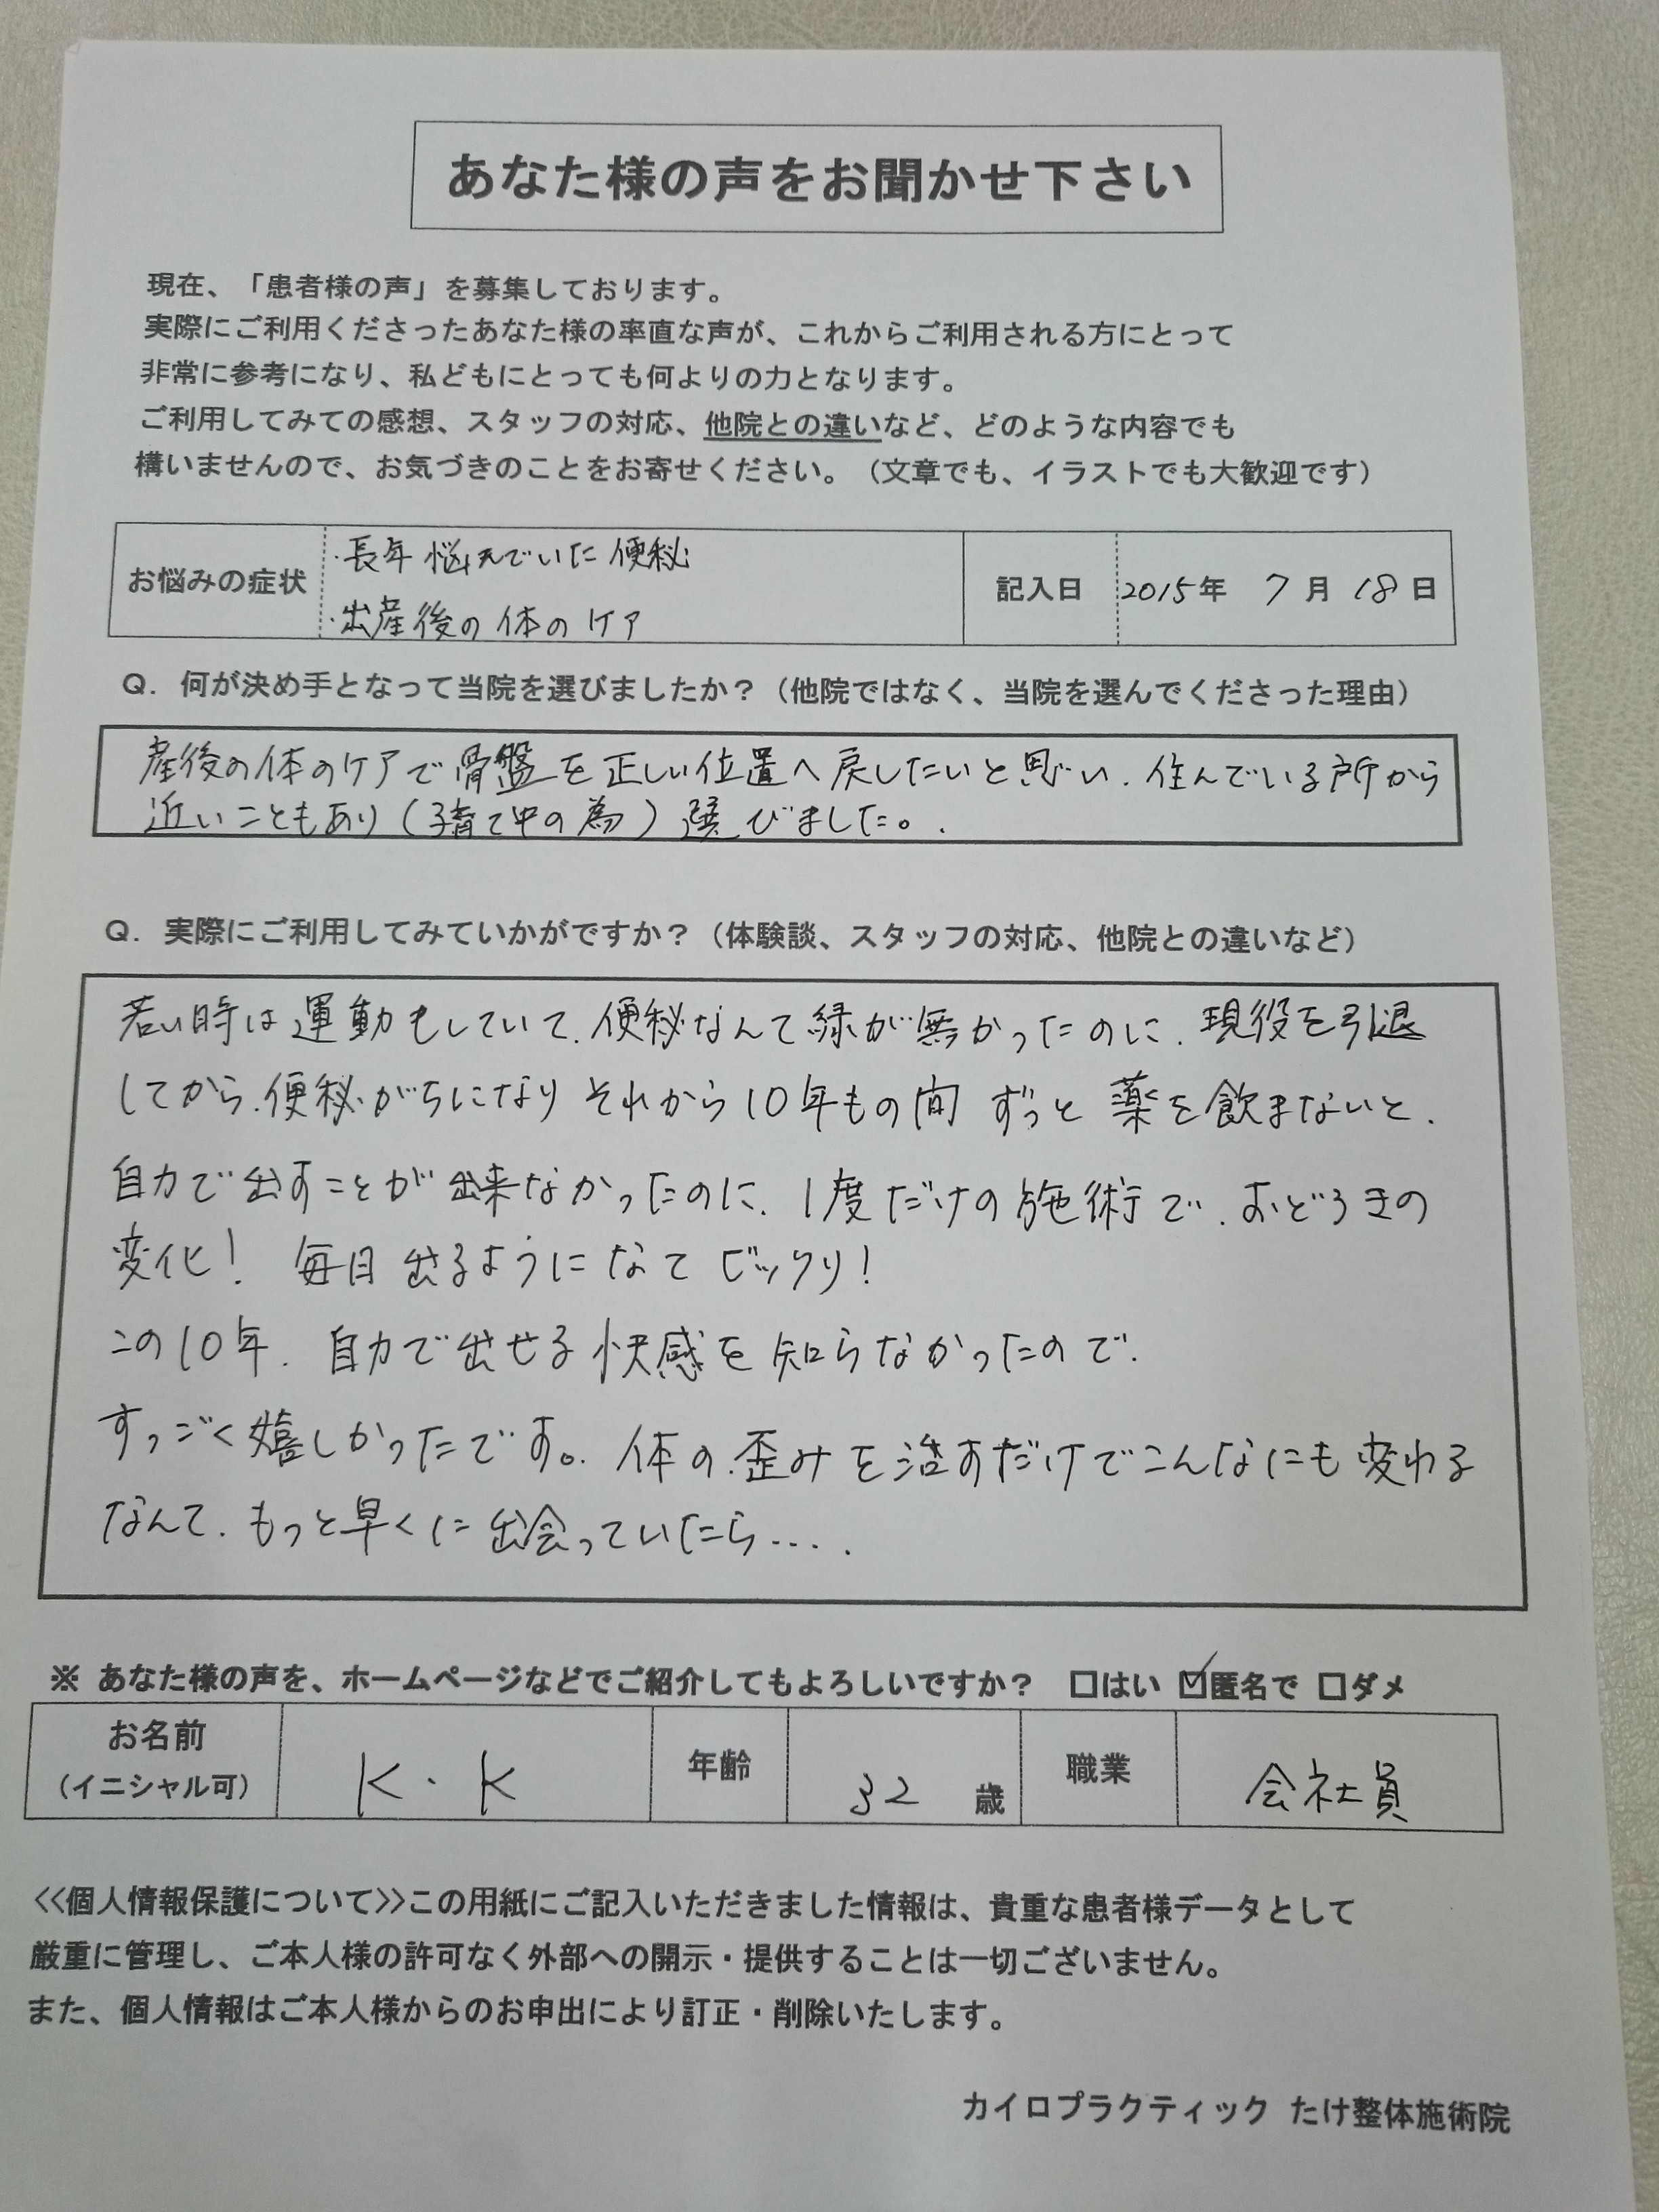 あなた様の声をお聞かせ下さい
現在、「患者様の声」を募集しております。
実際にご利用くださったあなた様の率直な声が、これからご利用される方にとって
非常に参考になり、私どもにとっても何よりの力となります。
ご利用してみての感想、スタッフの対応、他院との違いなど、どのような内容でも
構いませんので、お気づきのことをお寄せください。（文章でも、イラストでも大歓迎です）
お悩みの症状
・長年悩んでいた便秘
・出産後の体のケア
記入日 2015年 7月 18日
Q．何が決め手となって当院を選びましたか？（他院ではなく、当院を選んでくださった理由）
産後の体のケアで骨盤を正しい位置へ戻したいと思い、住んでいる所から
近いこともあり（子育て中の為）選びました。
Q．実際にご利用してみていかがですか？（体験談、スタッフの対応、他院との違いなど）
若い時は運動もしていて、便秘なんて縁が無かったのに、現役を引退
してから、便秘がちになりそれから10年もの間ずっと薬を飲まないと、
自力で出すことが出来なかったのに、1度だけの施術で、おどろきの
変化！ 毎日出るようになてビックリ！
この10年、自力で出せる快感を知らなかったので、
すっごく嬉しかったです。体の歪みを治すだけでこんなにも変わる
なんて、もっと早くに出会っていたら‥‥.
※ あなた様の声を、ホームページなどでご紹介してもよろしいですか？ □はい ☑匿名で □ダメ
お名前
（イニシャル可）
K・K
年齢 32 歳 職業 会社員
<<個人情報保護について>>この用紙にご記入いただきました情報は、貴重な患者様データとして
厳重に管理し、ご本人様の許可なく外部への開示・提供することは一切ございません。
また、個人情報はご本人様からのお申出により訂正・削除いたします。
カイロプラクティック たけ整体施術院